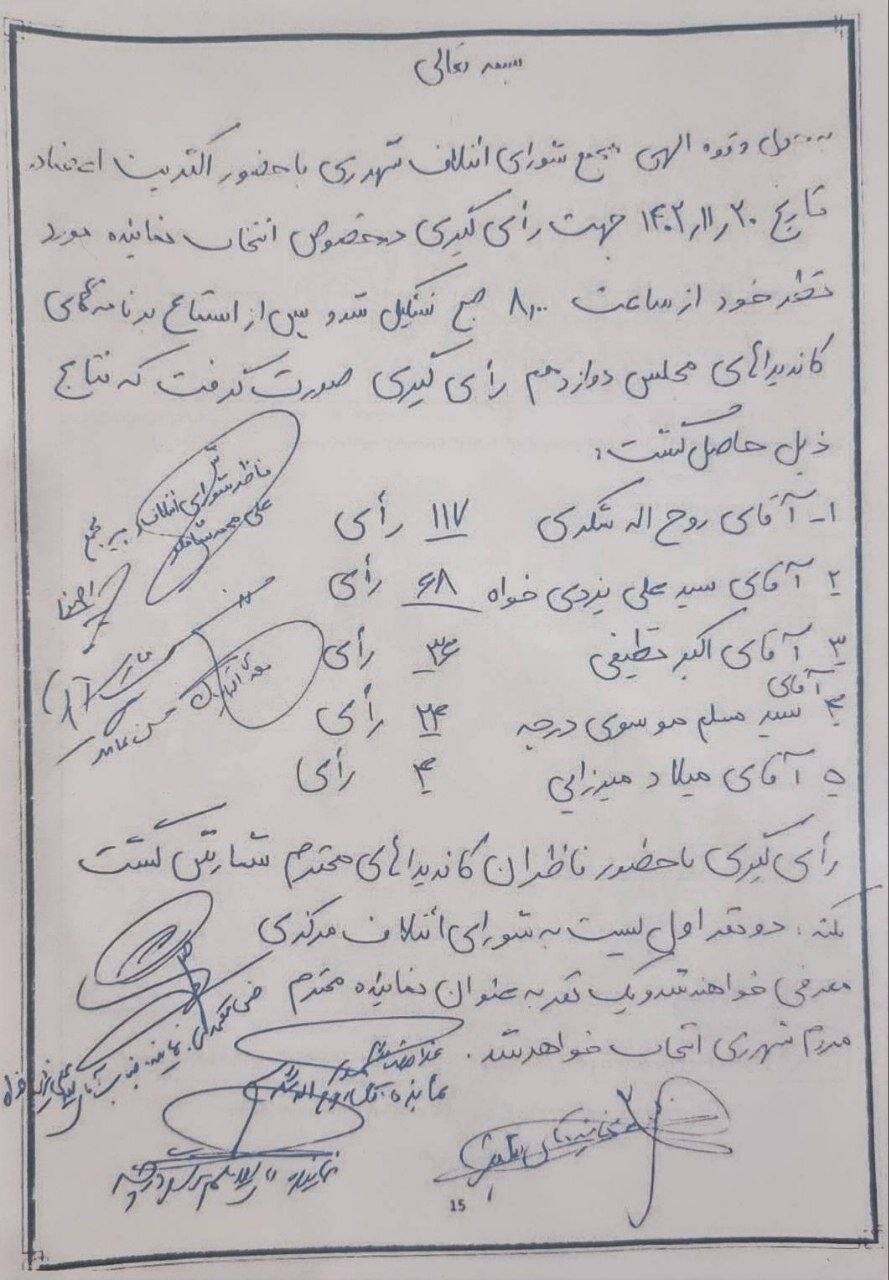 بسمه تعالی
به حول و قوه الهی مجمع شورای ائتلاف شهرری با حضور اکثریت اعضاء
تاریخ ۱۴۰۲٫۱۱٫۲۰ جهت رأی گیری درخصوص انتخاب نماینده مورد
نظر خود از ساعت ۸٫۰۰ صبح تشکیل شد و پس از استماع برنامه های
کاندیداهای مجلس دوازدهم رأی گیری صورت گرفت که نتایج
ذیل حاصل گشت:
۱- آقای روح اله شگری ۱۱۷ رأی
۲ آقای سید علی یزدی خواه ۶۸ رأی
۳ آقای اکبر نظیفی ۳۶ رأی
۴ آقای سید مسلم موسوی درچه ۲۴ رأی
۵ آقای میلاد میرزایی ۴ رأی
ناظر شورای ائتلاف
علی محمد
رأی گیری با حضور ناظران کاندیداهای محترم شمارش گشت
نکته: دو نفر اول لیست به شورای ائتلاف مرکزی
معرفی خواهند شد و یک نفر به عنوان نماینده محترم
مردم شهرری انتخاب خواهد شد.
نماینده آقای روح اله
نماینده
15